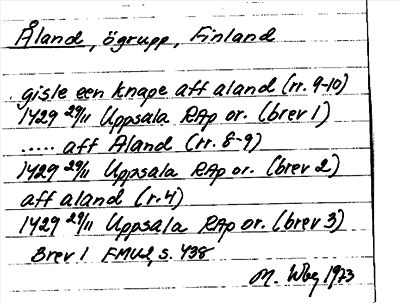 Åland, ögrupp, Finland
gisle een knape aff aland (rr. 9-10)
1429 29/11 Uppsala RAp or. (brev 1)
..... aff Aland (rr. 8-9)
1429 29/11 Uppsala RAp or. (brev 2)
aff aland (r. 4)
1429 29/11 Uppsala RAp or. (brev 3)
Brev 1 FMU 1, s. 438
M. Wbg 1973